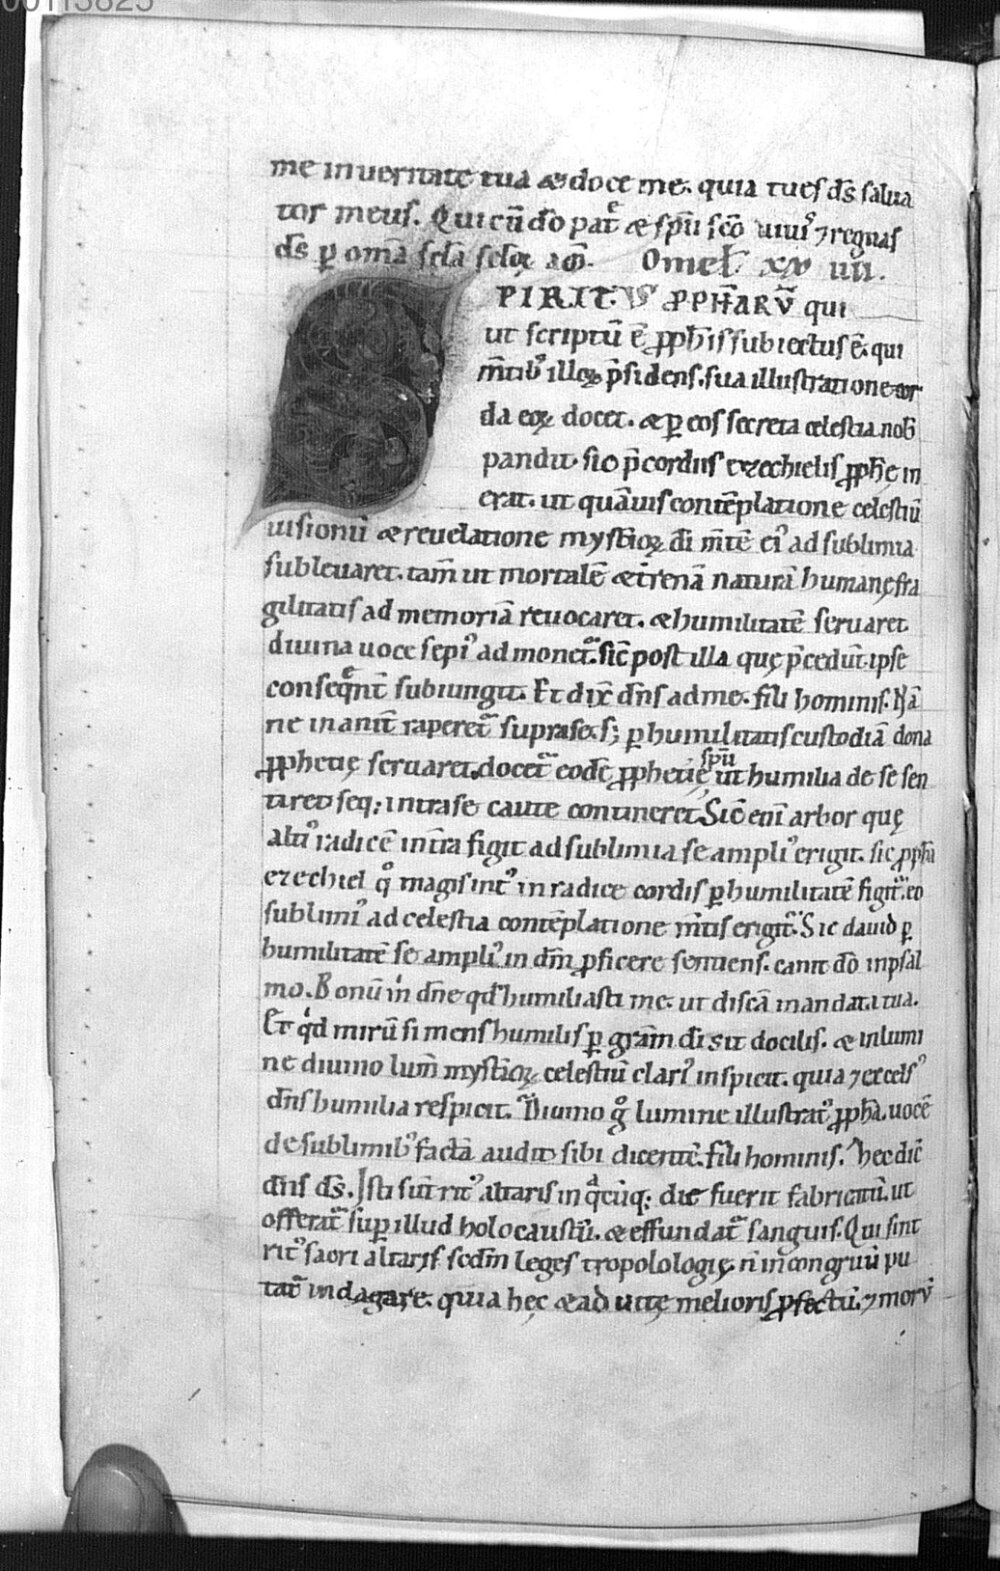 00113825
me in ueritate tua & doce me. quia tu es ds̄ salua
tor meus. Qui cū dō patͤ & sp̄u scō uiuiꝰ ⁊ regnas
ds̄ ꝑ om̄a scl̄a scl̄oꝝ am̄. Omel̄ xx uiii.
PIRITUS PPH̄ARV̄ qui
ut scriptū ē ꝓph̄is subiectus ē. qui
m̄tibꝰ illoꝝ p̄sidens. sua illustratione cor
da eoꝝ docet. & ꝑ eos secreta celestia nob̄
pandit. sic p̄cordiis ezechielis ꝓph̄ę in
erat. ut quāuis contēplatione celestiū
uisionū & reuelatione mystic̄oꝝ dī m̄tē eiꝰ ad sublimia
subleuaret. tam̄ ut mortalē & tr̄renā naturā humanę fra
gilitatis ad memoriā reuocaret. & humilitatē seruaret
diuina uoce sepiꝰ ad monet᷑. sic̄ post illa quę p̄cedūt. ipse
conseqͤnt̄ subiungit. Et dix̄ dn̄s ad me. fili hominis. Nā
ne inanit̄ raperet᷑ supra se. sꝫ ꝑ humilitatis custodiā dona
ꝓphetię seruaret. docet᷑ eodē ꝓphetię sp̄u ut humilia de se sen
tiret seqꝫ intra se caute contineret. Sic̄ enī arbor quę
altiꝰ radicē in t̄ra figit ad sublimia se ampliꝰ erigit. sic ꝓph̄a
ezechiel qͦ magis intꝰ in radice cordis ꝑ humilitatē figit᷑. eo
sublimiꝰ ad celestia contēplatione m̄tis erigit᷑. Sic dauid ꝑ
humilitatē se ampliꝰ in dm̄ ꝓficere sentiens. canit dō in psal
mo. Bonū m̍ dn̄e qd̄ humiliasti me. ut discā mandata tua.
Et qͥd mirū si mens humilis ꝑ grām dī sit docilis. & in lumi
ne diuino lum̄ mystic̄oꝝ celestiū clariꝰ inspicit. quia ⁊ excelsꝰ
dn̄s humilia respicit. Diuino gͦ lumine illustratꝰ ꝓph̄a. uocē
de sublimibꝰ factā audit sibi dicentē. fili hominis. hec dic̄
dn̄s ds̄. Isti sūt ritꝰ altaris in qͣcūqꝫ die fuerit fabricatū. ut
offerat᷑ suꝑ illud holocaustū. & effundat᷑ sanguis. Qui sint
ritꝰ sacri altaris scdm̄ leges tropolologię. n̄ incongruū pu
tat̄ indagare. quia hęc & ad uitę melioris ꝓfectū. ⁊ morū